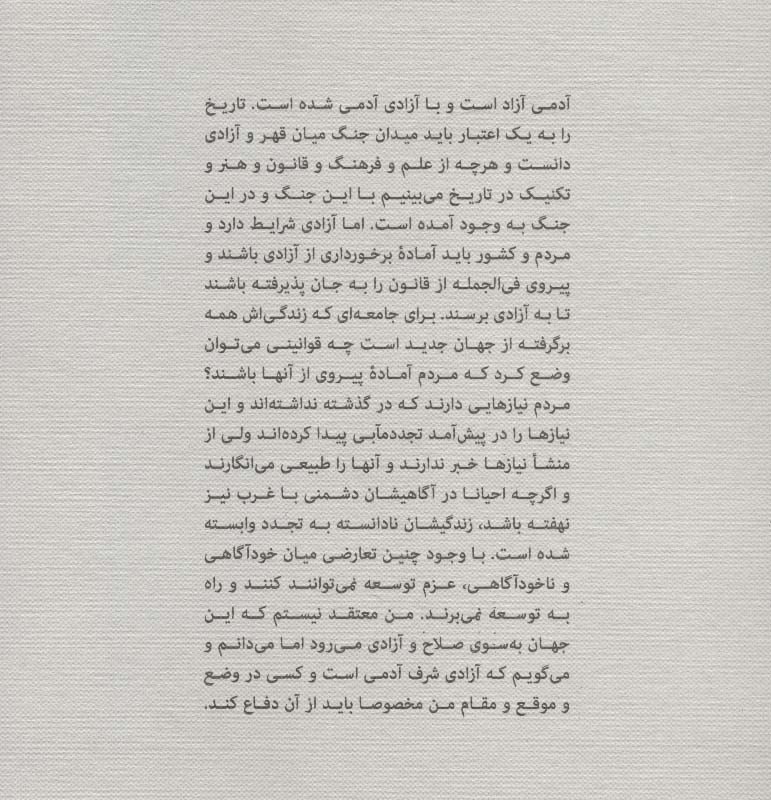 آدمی آزاد است و با آزادی آدمی شده است. تاریخ
را به یک اعتبار باید میدان جنگ میان قهر و آزادی
دانست و هرچه از علم و فرهنگ و قانون و هنر و
تکنیک در تاریخ می‌بینیم با این جنگ و در این
جنگ به وجود آمده است. اما آزادی شرایط دارد و
مردم و کشور باید آمادهٔ برخورداری از آزادی باشند و
پیروی فی‌الجمله از قانون را به جان پذیرفته باشند
تا به آزادی برسند. برای جامعه‌ای که زندگی‌اش همه
برگرفته از جهان جدید است چه قوانینی می‌توان
وضع کرد که مردم آمادهٔ پیروی از آنها باشند؟
مردم نیازهایی دارند که در گذشته نداشته‌اند و این
نیازها را در پیش‌آمد تجددمآبی پیدا کرده‌اند ولی از
منشأ نیازها خبر ندارند و آنها را طبیعی می‌انگارند
و اگرچه احیانا در آگاهیشان دشمنی با غرب نیز
نهفته باشد، زندگیشان نادانسته به تجدد وابسته
شده است. با وجود چنین تعارضی میان خودآگاهی
و ناخودآگاهی، عزم توسعه نمی‌توانند کنند و راه
به توسعه نمی‌برند. من معتقد نیستم که این
جهان به‌سوی صلاح و آزادی می‌رود اما می‌دانم و
می‌گویم که آزادی شرف آدمی است و کسی در وضع
و موقع و مقام من مخصوصا باید از آن دفاع کند.